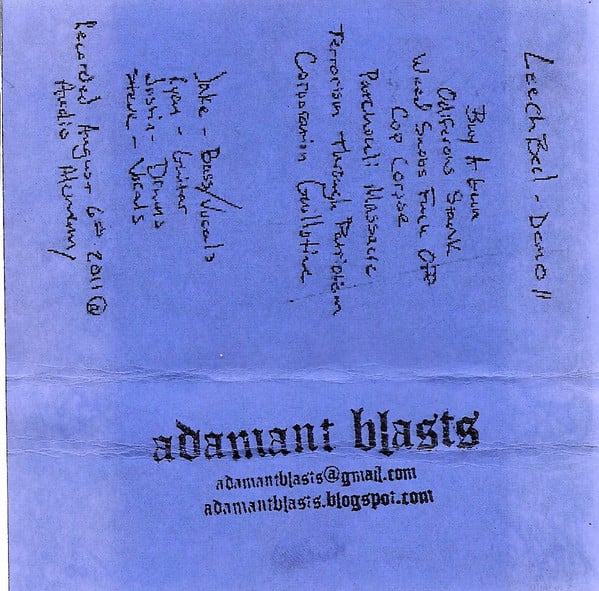 LeechBed - Demo 11
Buy A Gun
Odiferous Stank
Weed Snobs Fuck Off
Cop Corpse
Patchouli Massacre
Terrorism Through Patriotism
Corporation Guillotine
Jake - Bass/Vocals
Ryan - Guitar
Justin - Drums
Steve - Vocals
Recorded August 6th 2011 @
Audio Alchemy
adamant blasts
adamantblasts@gmail.com
adamantblasts.blogspot.com